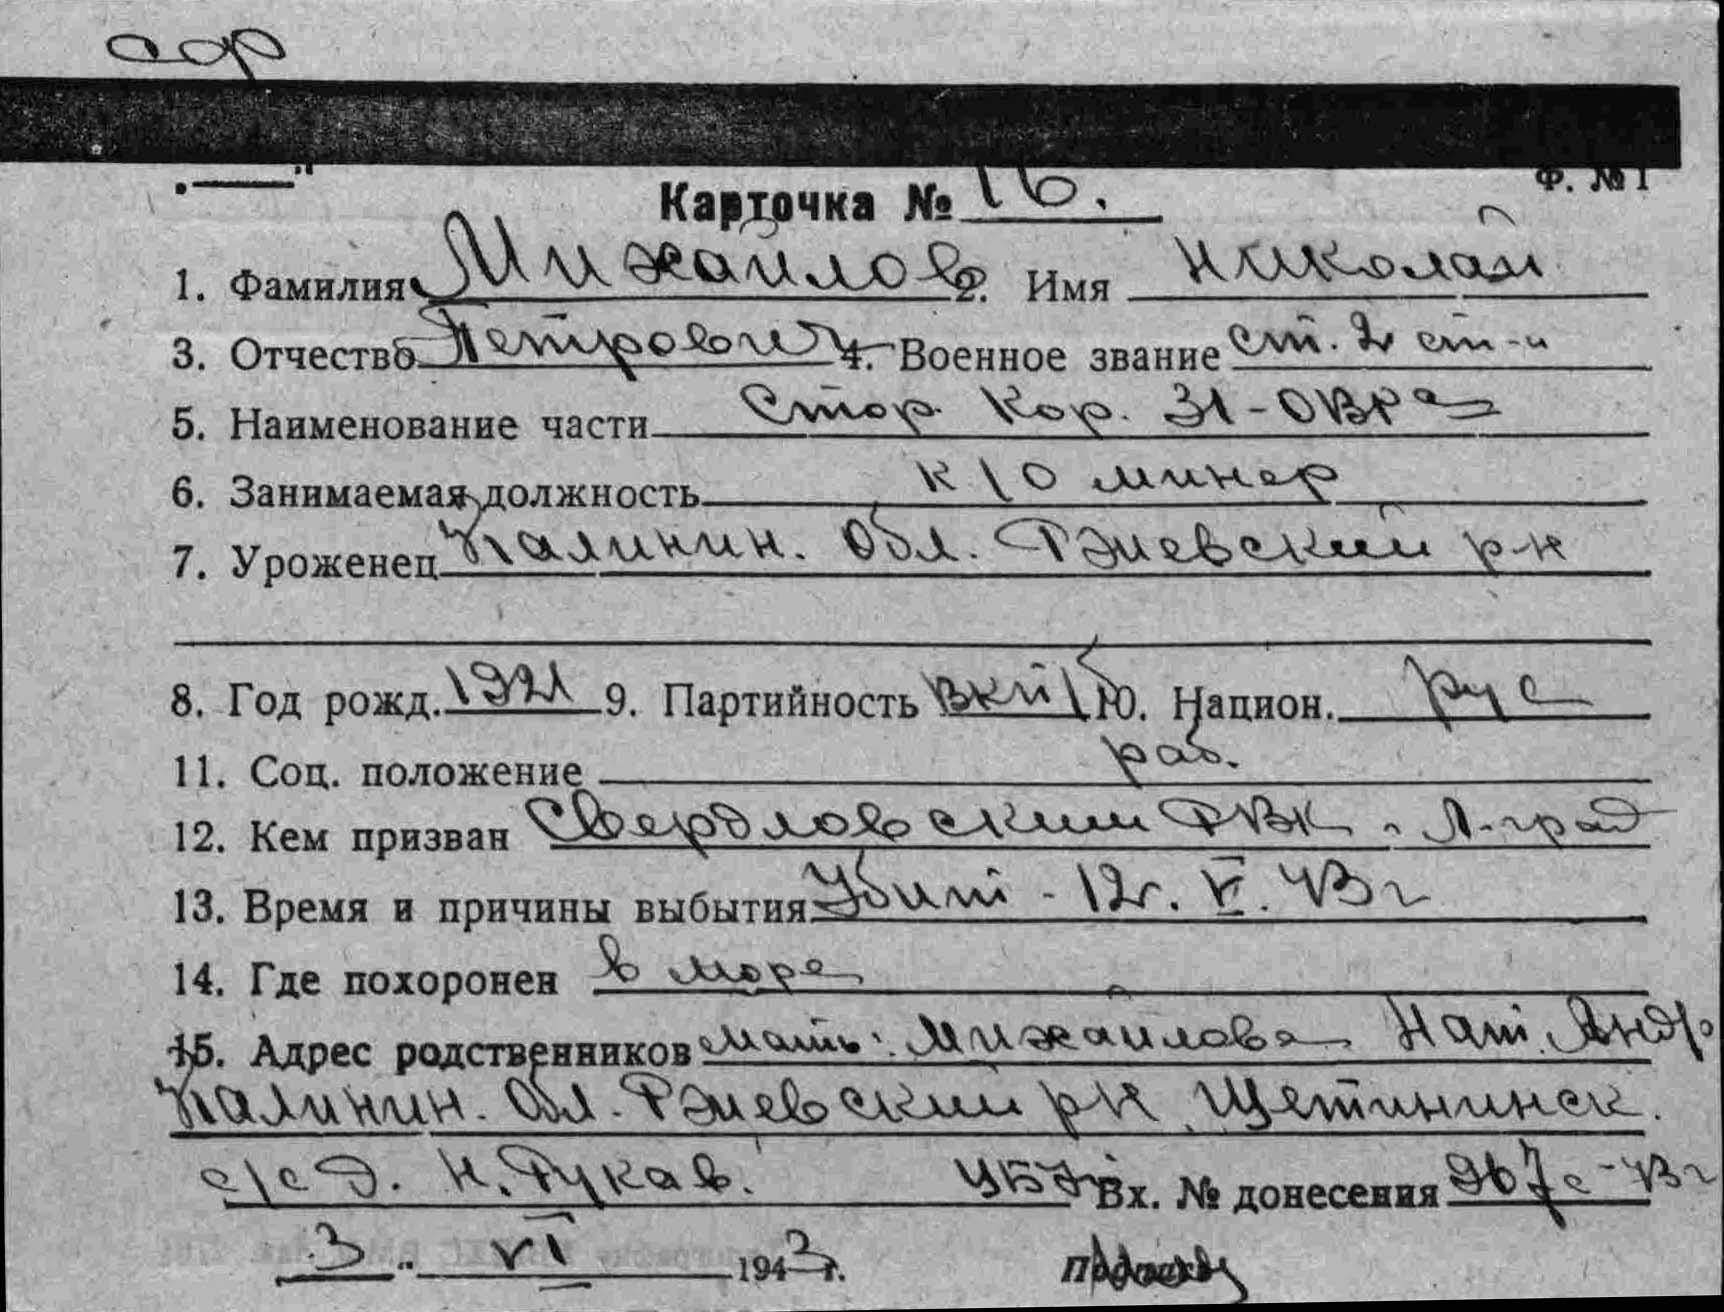 Ф. № 1
Карточка № 16.
1. Фамилия Михайлов 2. Имя Николай
3. Отчество Петрович 4. Военное звание ст. 2 ст-и
5. Наименование части Стор. Кор. 31-ОВРа
6. Занимаемая должность к/о минер
7. Уроженец Калинин. Обл. Ржевский р-н
8. Год рожд. 1921 9. Партийность ВКП/б 10. Национ. рус
11. Соц. положение раб.
12. Кем призван Свердловский РВК Л-град
13. Время и причины выбытия Убит - 12г. VI. 43г
14. Где похоронен в море
15. Адрес родственников мать: Михайлова Нат. Андр
Калинин. Обл. Ржевский р-н, Щетининск.
с/с д. Н. Рукав. Вх. № донесения 967с-43г
3 " VI 1943 г.